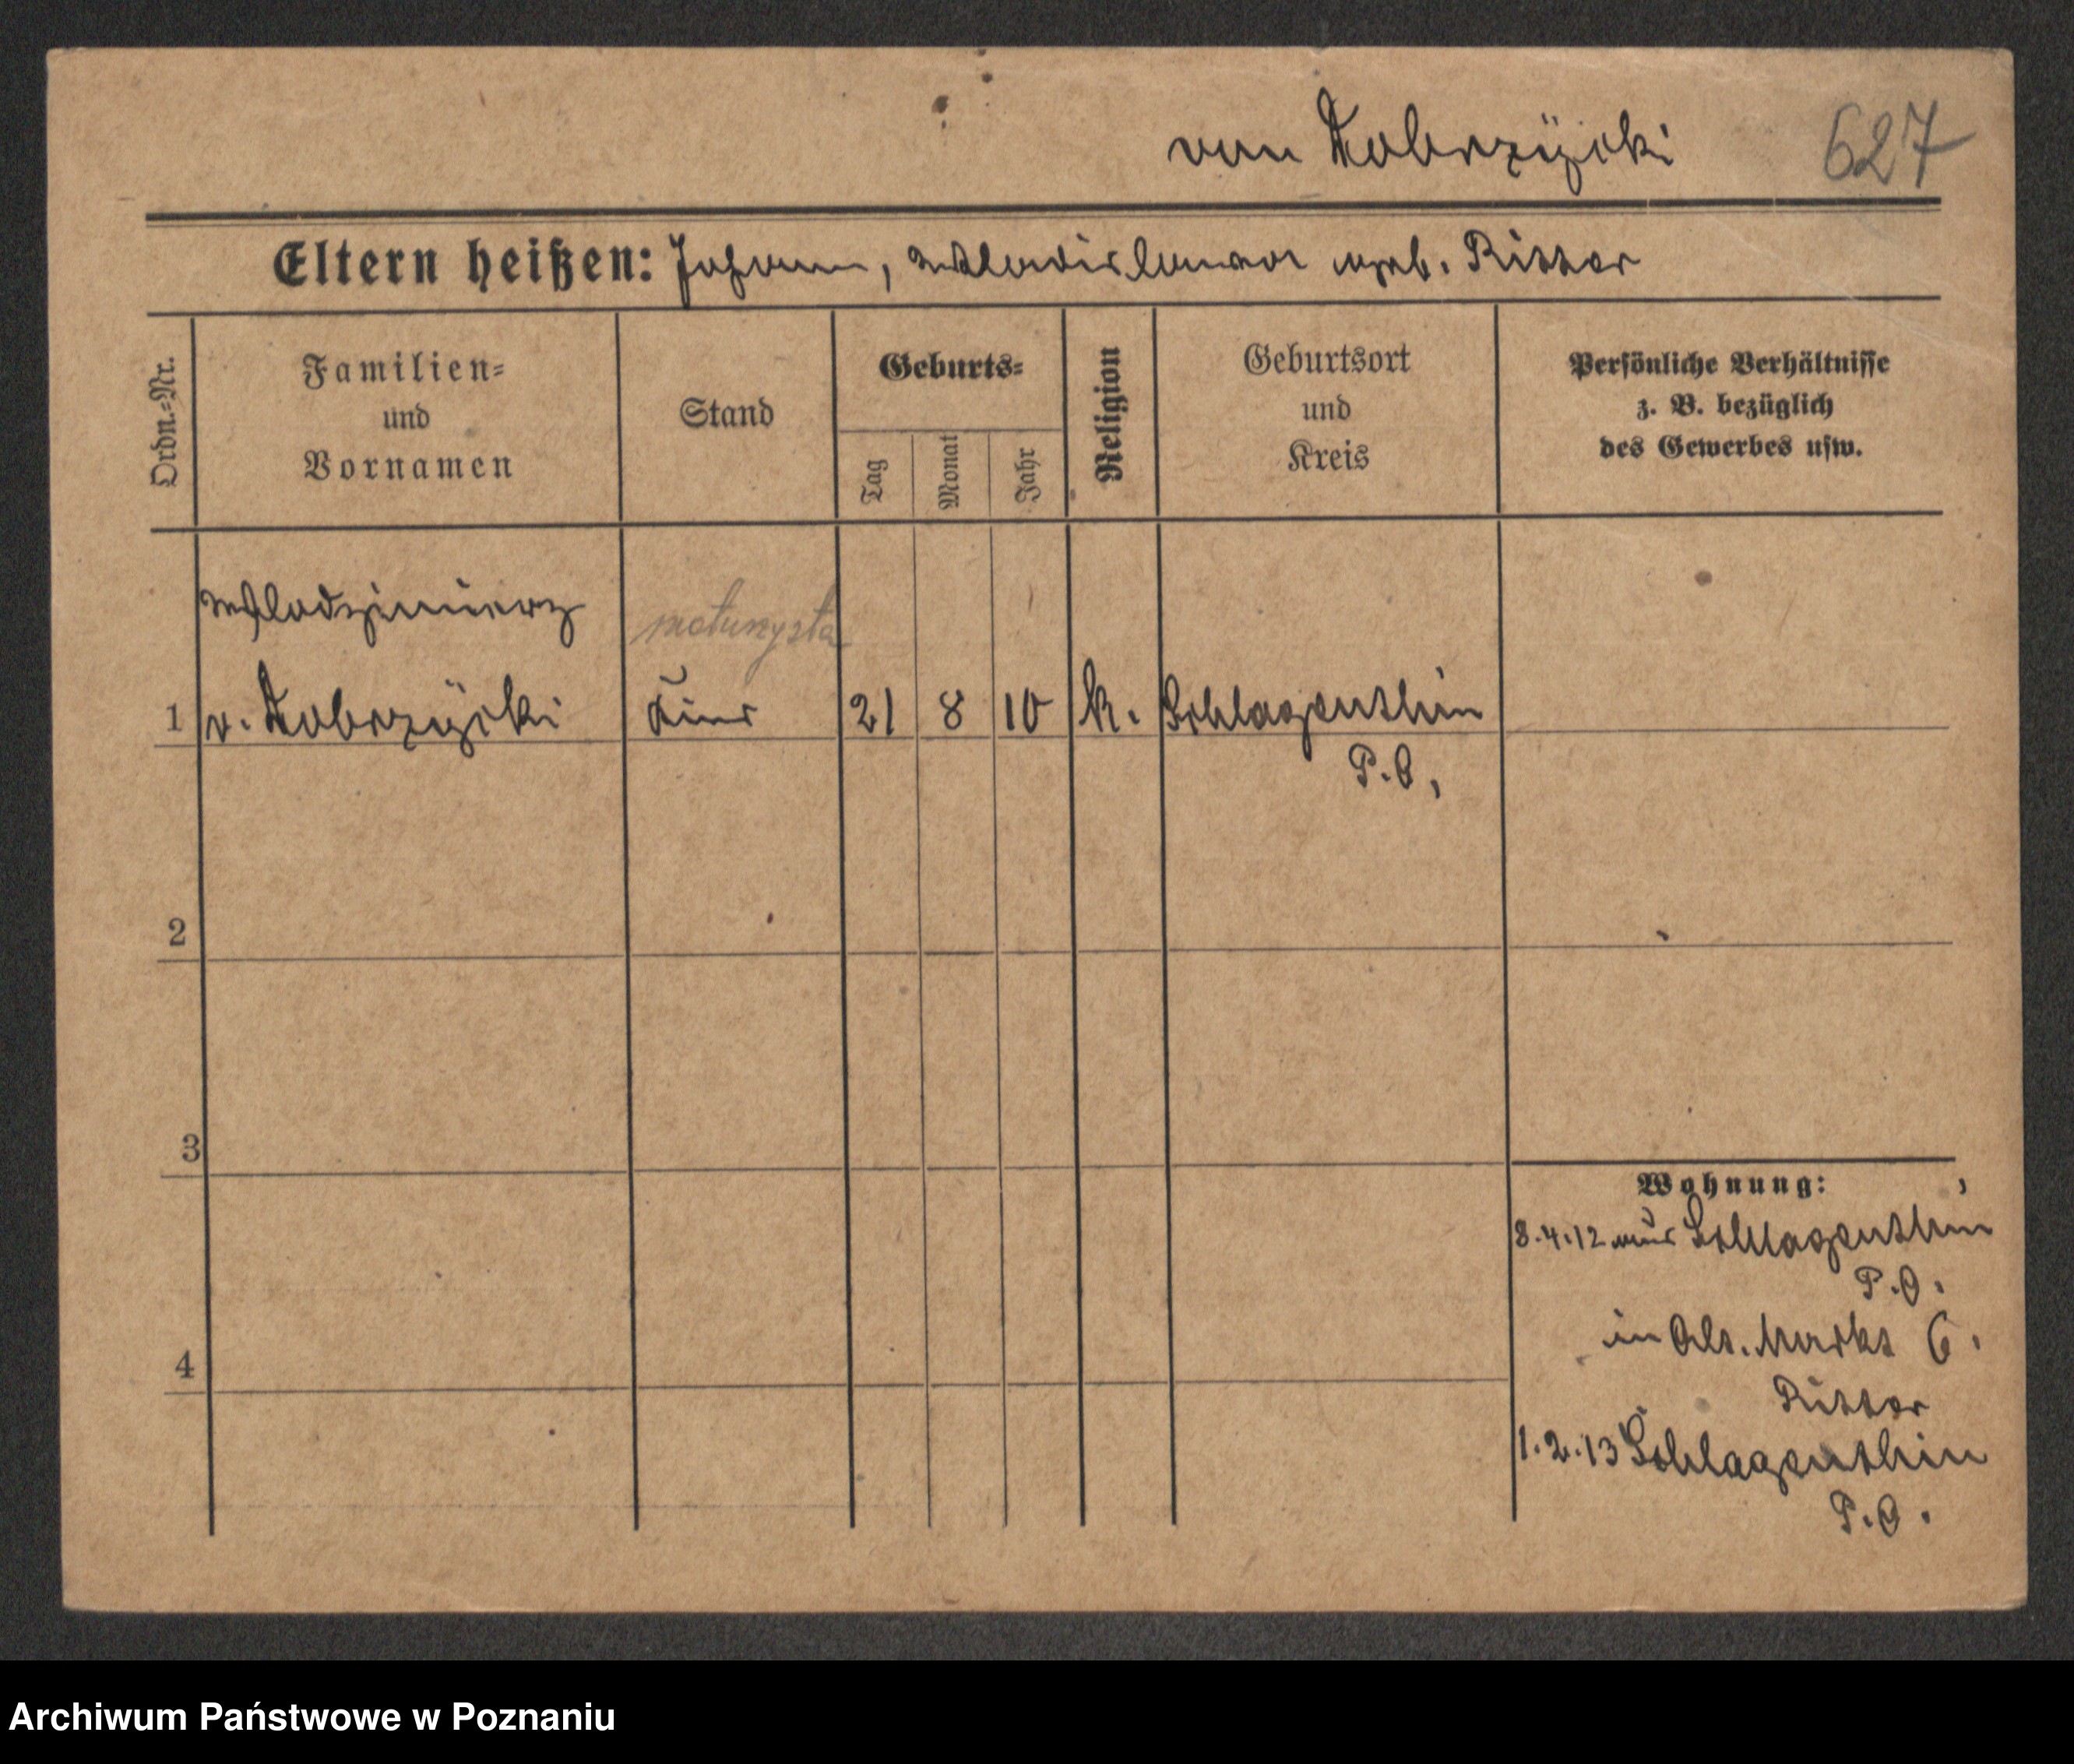 von Dobrzÿcki 627
Eltern heißen: Johann, Wladislawa geb. Ritter
Ordn.=Nr.
Familien=
und
Vornamen
Stand
Geburts=
Tag
Monat
Jahr
Religion
Geburtsort
und
Kreis
Persönliche Verhältnisse
z. B. bezüglich
des Gewerbes usw.
Wlodzimierz
1 v. Dobrzÿcki Kind 21 8 10 k. Schlagenthin
P. O.
2
3
4
Wohnung:
8.4.12 aus Schlagenthin
P. O.
in Alt. Markt 6.
Ritter
1.2.13 Schlagenthin
P. O.
Archiwum Państwowe w Poznaniu